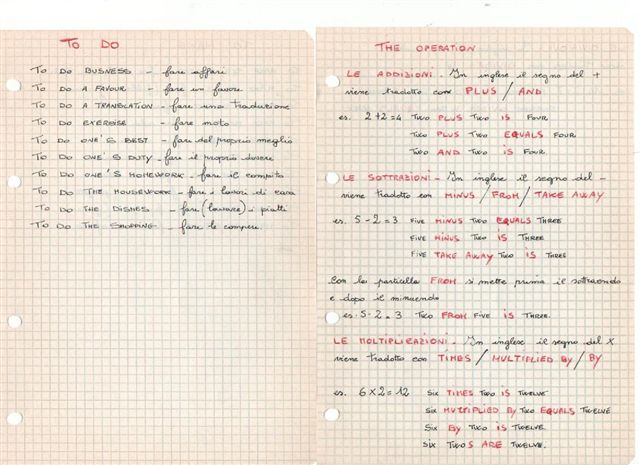 TO DO
TO DO BUSNESS - fare affari
TO DO A FAVOUR - fare un favore
TO DO A TRANSLATION - fare una traduzione
TO DO EXERCISE - fare moto
TO DO ONE'S BEST - fare del proprio meglio
TO DO ONE'S DUTY - fare il proprio dovere
TO DO ONE'S HOMEWORK - fare il compito
TO DO THE HOUSEWORK - fare i lavori di casa
TO DO THE DISHES - fare (lavare) i piatti
TO DO THE SHOPPING - fare le compere.
THE OPERATION
LE ADDIZIONI. In inglese il segno del +
viene tradotto con PLUS / AND
es. 2+2=4 TWO PLUS TWO IS FOUR
TWO PLUS TWO EQUALS FOUR
TWO AND TWO IS FOUR
LE SOTTRAZIONI. In inglese il segno del -
viene tradotto con MINUS / FROM / TAKE AWAY
es. 5-2=3 FIVE MINUS TWO EQUALS THREE
FIVE MINUS TWO IS THREE
FIVE TAKE AWAY TWO IS THREE
Con la particella FROM si mette prima il sottraendo
e dopo il minuendo
es. 5-2=3 TWO FROM FIVE IS THREE.
LE MOLTIPLICAZIONI. In inglese il segno del x
viene tradotto con TIMES / MULTIPLIED BY / BY
es. 6x2=12 SIX TIMES TWO IS TWELVE
SIX MULTIPLIED BY TWO EQUALS TWELVE
SIX BY TWO IS TWELVE.
SIX TWOS ARE TWELVE.